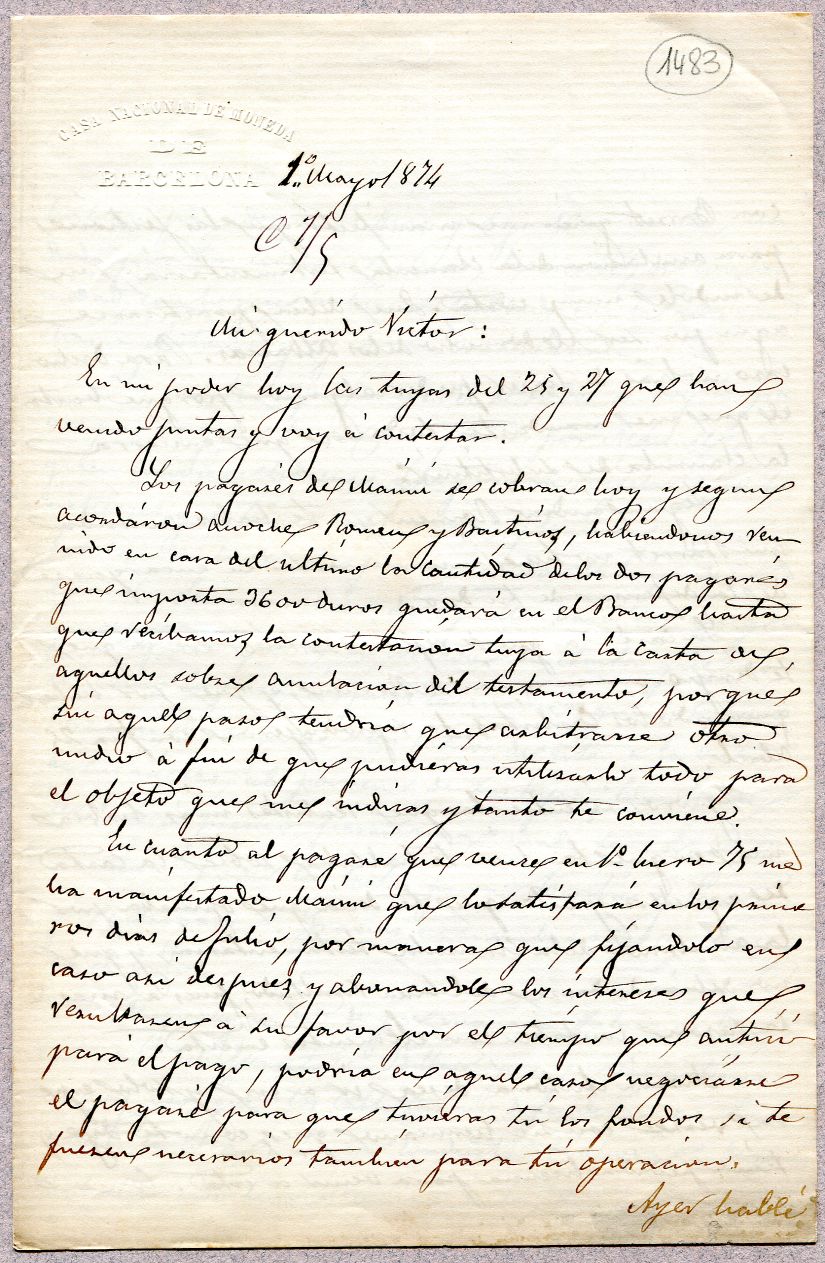 1483
CASA NACIONAL DE MONEDA
DE
BARCELONA
1º Mayo 1874
C 7/5
Mi querido Victor:
En mi poder hoy las tuyas del 25 y 27 que han
venido juntas y voy á contestar.
Los pagarés de Maimi se cobran hoy y segun
acordáron anoche Romeu y Bastinos, habiendonos ve-
nido en cara del ultimo la cantidad de los dos pagarés
que importa 3600 duros quedará en el Banco hasta
que recibamos la contestacion tuya á la carta de
aquellos sobre anulacion del testamento, porque
sin aquel paso tendria que arbitrarse otro
medio á fin de que pudieras utilizarlo todo para
el objeto que me indicas y tanto te conviene.
En cuanto al pagaré que vence en 1º Enero 75 me
ha manifestado Maimi que lo satisfará en los prime
ros dias de Julio, por manera que fijandolo en
caso asi despues y abonandole los intereses que
resultasen á su favor por el tiempo que antici
para el pago, podria en aquel caso negociarse
el pagaré para que tuvieras tú los fondos si te
fuesen necesarios tambien para tú operacion.
Ayer hablé